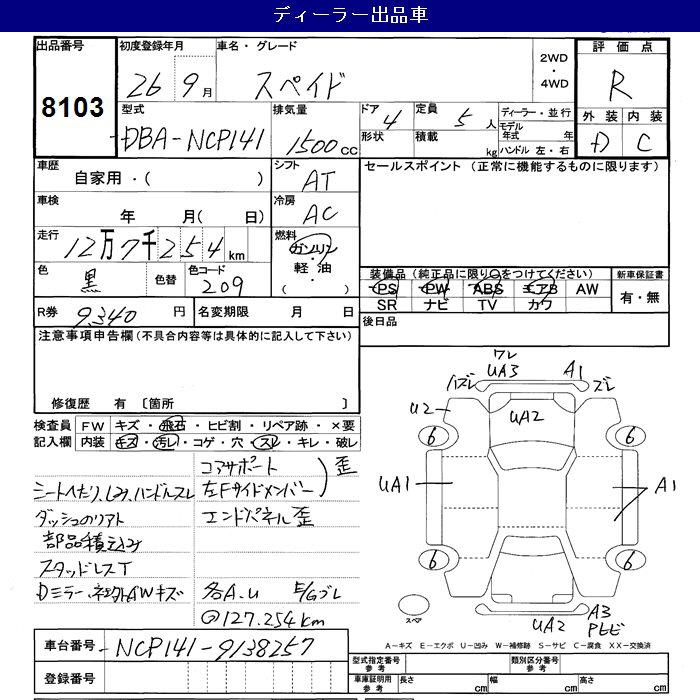 ディーラー出品車
出品番号 8103
初度登録年月 26年 9月
車名・グレード スペイド
2WD・4WD
評価点 R
外装 D 内装 C
型式 DBA-NCP141
排気量 1500cc
ドア 4 形状
定員 5人 積載 kg
ディーラー・並行
モデル年式 年
ハンドル 左・右
車歴 自家用・( )
シフト AT
セールスポイント (正常に機能するものに限ります)
車検 年 月( 日)
冷房 AC
走行 12万7千254km
燃料 ガソリン・軽油・( )
色 黒 色替 色コード 209
装備品(純正品に限り○をつけてください) 新車保証書
PS PW ABS エアB AW 有・無
SR ナビ TV カワ
R券 9,340円 名変期限 月 日
後日品
注意事項申告欄(不具合内容等は具体的に記入して下さい)
修復歴 有 〔箇所 〕
検査員記入欄 FW キズ・飛石・ヒビ割・リペア跡・×要
内装 キズ・汚レ・コゲ・穴・スレ・キレ・破レ
コアサポート
シートヘたり、シミ、ハンドルスレ 左Fサイドメンバー 歪
ダッシュのリアト エンドパネル歪
部品積込み
スタッドレスT
Dミラー、ネ AWキズ 各A.U E/Gブレ
@127.254km
ワレ
UA3 A1
ハズレ ズレ
U2 UA2
6 6
UA1 A1
6 6
スペア
UA2 A3
PLビ
A-キズ E-エクボ U-凹み W-補修跡 S-サビ C-腐食 XX-交換済
車台番号 NCP141-9138257
登録番号
型式指定番号 参考 類別区分番号 参考
車庫証明用 参考 長さ cm 幅 cm 高さ cm